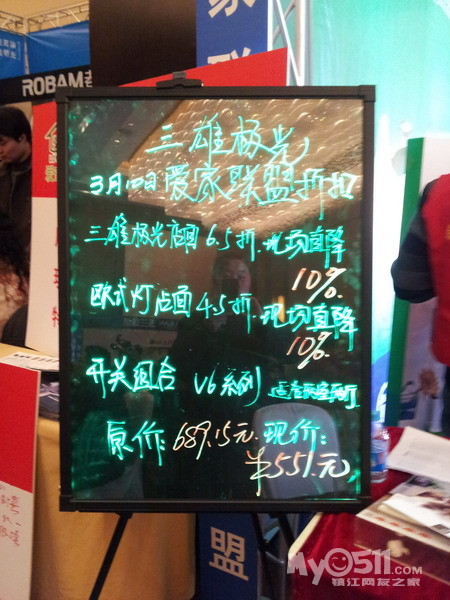 家
联
ROBAM
三雄极光
3月10日爱家联盟折扣
三雄极光店面6.5折.现场直降
10%.
欧式灯店面4.5折.现场直降
10%.
开关组合 V6系列
原价:689.15元.现价:
¥551元
盟
My0511.com
镇江网友之家